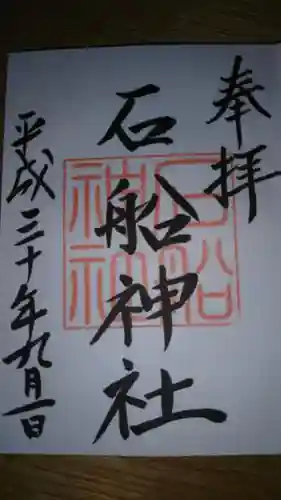 奉拝
石船神社
石船
神社
平成三十年九月一日